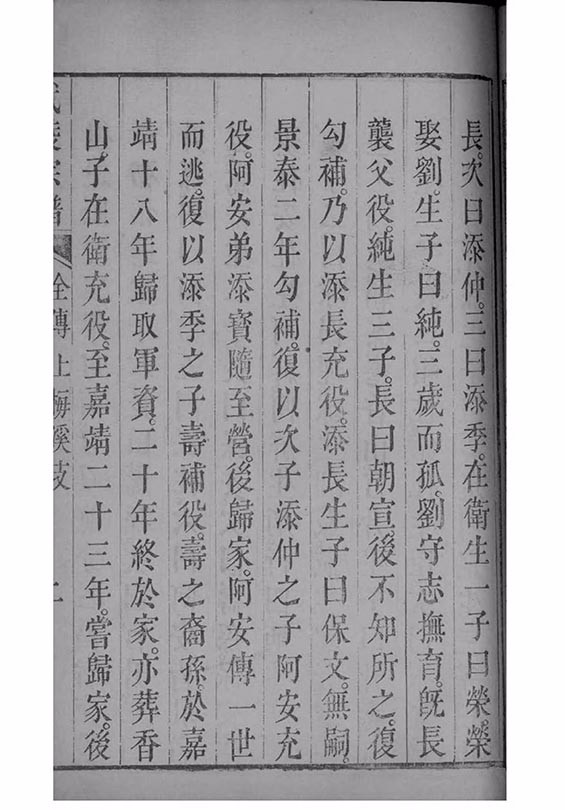 長。次曰添仲。三曰添季。在衛生一子曰榮。榮
娶劉。生子曰純。三歲而孤。劉守志撫育。旣長
襲父役。純生三子。長曰朝宣。後不知所之。復
勾補。乃以添長充役。添長生子曰保文。無嗣。
景泰二年勾補。復以次子添仲之子阿安充
役。阿安弟添寳隨至營。後歸家。阿安傳一世
而逃。復以添季之子壽補役。壽之裔孫。於嘉
靖十八年歸取軍資。二十年終於家。亦葬香
山。子在衛充役。至嘉靖二十三年。嘗歸家。後
宗譜 全傳 上梅溪支 二